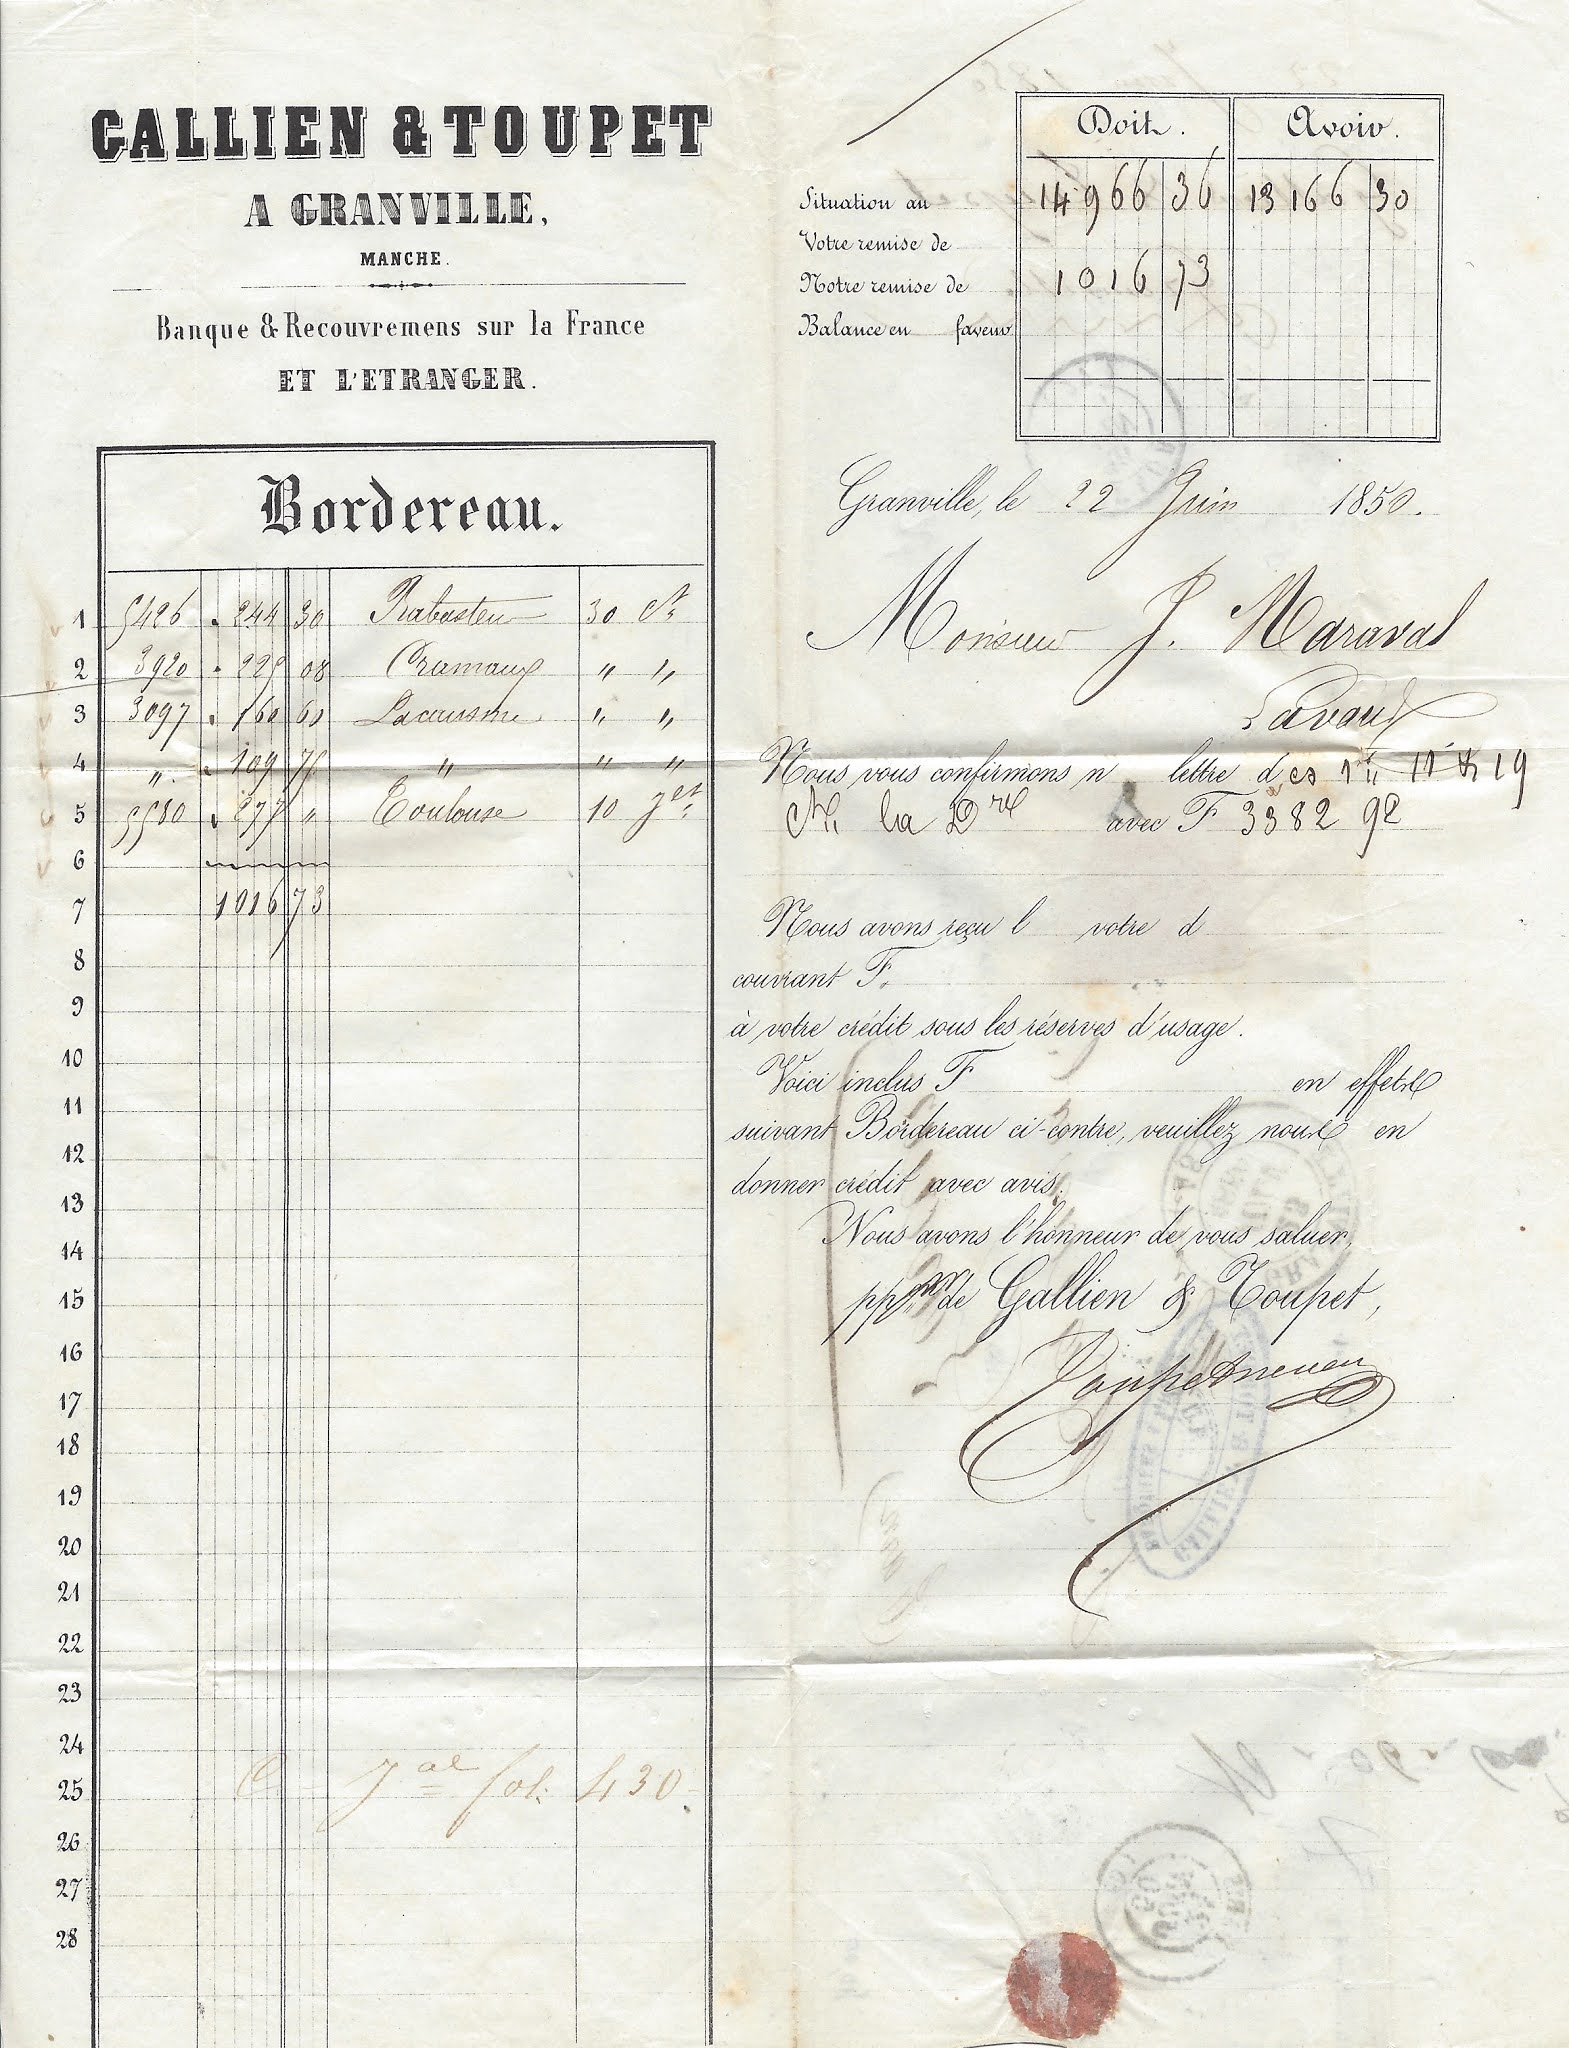 GALLIEN & TOUPET
A GRANVILLE,
MANCHE.
Banque & Recouvremens sur la France
ET L'ETRANGER.
Bordereau.
1 5426 244 30 Rabasten 30 Ct
2 3920 225 08 Cramaux " "
3 3097 160 60 Lacausme " "
4 " 109 75 " " "
5 5580 277 " Toulouse 10 Jet
6
7 1016 73
8
9
10
11
12
13
14
15
16
17
18
19
20
21
22
23
24
25 Jal fol: 430
26
27
28
Doit. Avoir.
Situation au 14966 36 13166 30
Votre remise de
Notre remise de 1016 73
Balance en faveur
Granville, le 22 Juin 1850.
Monsieur J. Maraval
Lavaur
Nous vous confirmons n lettre des 1er 11 & 19
Ct la Dre avec F 3382 92
Nous avons reçu l votre d
courant F.
à votre crédit sous les réserves d'usage.
Voici inclus F en effets
suivant Bordereau ci-contre, veuillez nous en
donner crédit avec avis.
Nous avons l'honneur de vous saluer,
pp de Gallien & Toupet,